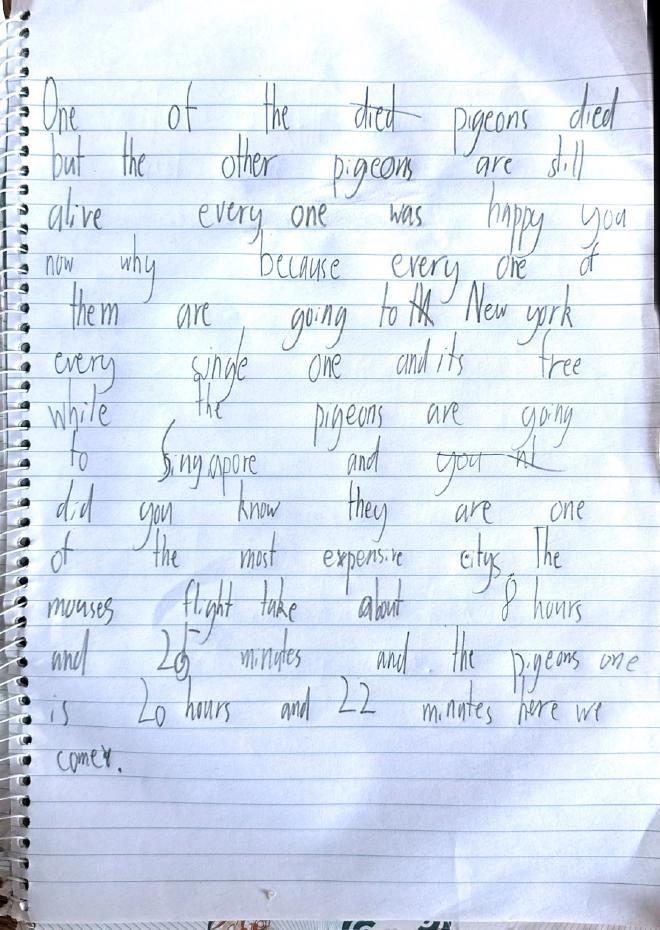 One of the died pigeons died
but the other pigeons are still
alive every one was happy you
now why because every one of
them are going to New york
every single one and its free
while the pigeons are going
to Singapore and you
did you know they are one
of the most expensive citys. The
mouses flight take about 8 hours
and minutes and the pigeons one
is 20 hours and 22 minutes here we
come.